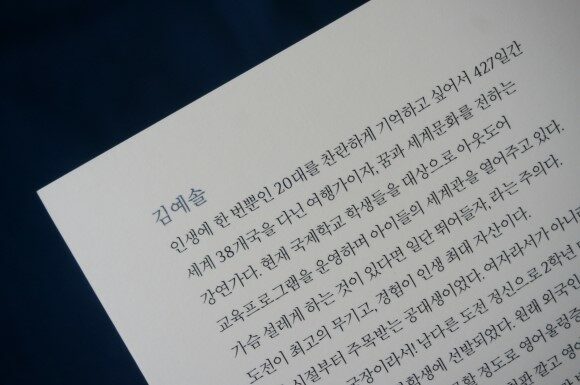 김예솔
인생에 한 번뿐인 20대를 찬란하게 기억하고 싶어서 427일간
세계 38개국을 다닌 여행가이자, 꿈과 세계문화를 전하는
강연가다. 현재 국제학교 학생들을 대상으로 아웃도어
교육프로그램을 운영하며 아이들의 세계관을 열어주고 있다.
가슴 설레게 하는 것이 있다면 일단 뛰어들자, 라는 주의다.
도전이 최고의 무기고, 경험이 인생 최대 자산이다.
시절부터 주목받는 공대생이었다. 여자라서가 아니라
국장이라서! 남다른 도전 정신으로 2학년
학생에 선발되었다. 원래 외국인
할 정도로 영어울렁증
깔고 영어